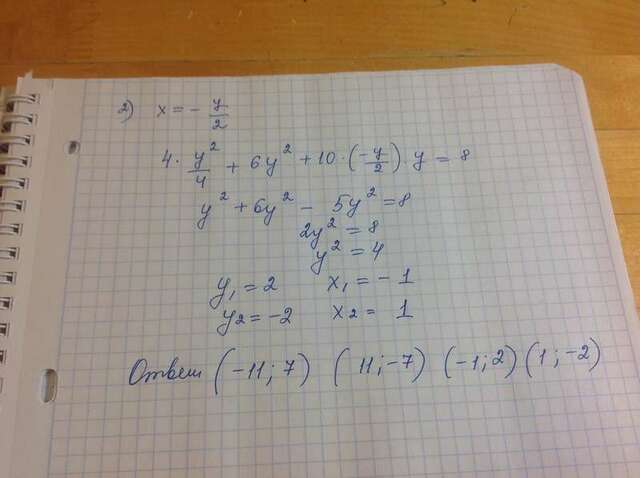 2) x = - y/2
4 · y²/4 + 6y² + 10 · (-y/2) · y = 8
y² + 6y² - 5y² = 8
2y² = 8
y² = 4
y₁ = 2 x₁ = - 1
y₂ = -2 x₂ = 1
Ответ (-11; 7) (11; -7) (-1; 2) (1; -2)